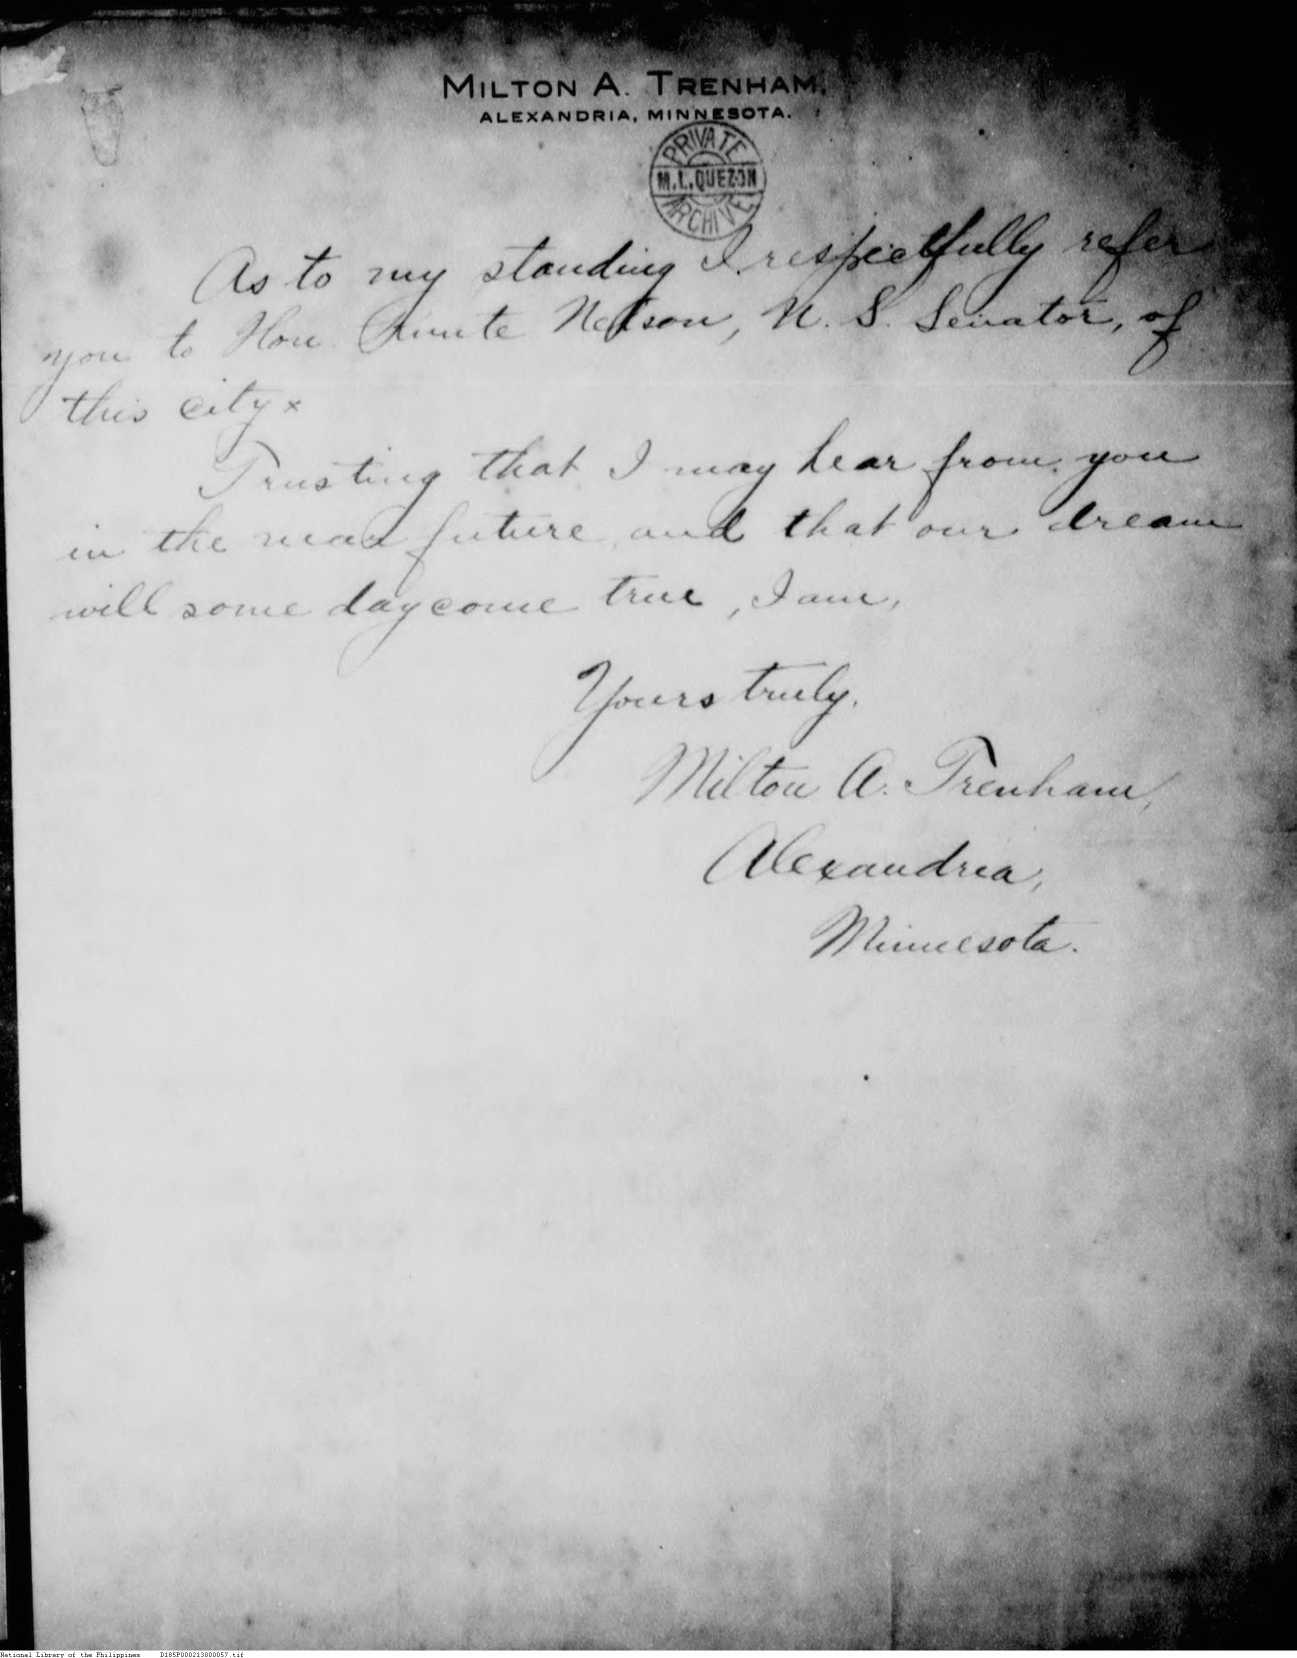 MILTON A. TRENHAM,
ALEXANDRIA, MINNESOTA.
PRIVATE
M.L.QUEZON
ARCHIVE
As to my standing I respectfully refer
you to Hon. Knute Nelson, U. S. Senator, of
this city x
Trusting that I may hear from you
in the near future and that our dream
will some day come true, I am,
Yours truly,
Milton A. Trenham,
Alexandria,
Minnesota.
National Library of the Philippines D185P000213800057.tif